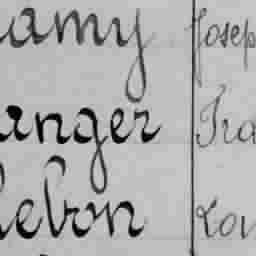 amy Josep
anger Fra
lebon Lou